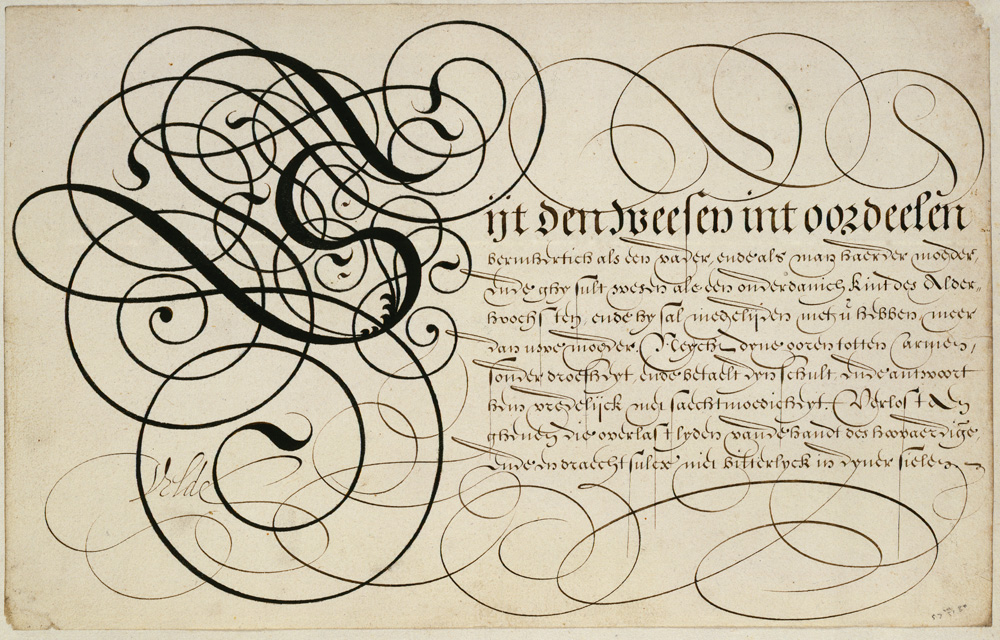 Sijt den Weesen int oordeelen
bermhertich als een vader, ende als man haerder moeder,
Ende ghy sult wesen als een onderdanich kint des Alder-
hoochsten, ende hy sal medelijden met ú hebben, meer
dan uwe moeder. Neycht dyne ooren totten Armen,
sonder droefheyt, ende betaelt dyn schult, Ende antwoort
hem vredelijck met saechtmoedicheyt. Verlost den
ghenen die overlast lyden vande handt des hoovaerdige
Ende en draecht sulcx niet bitterlyck in dyner sielen.
Velde